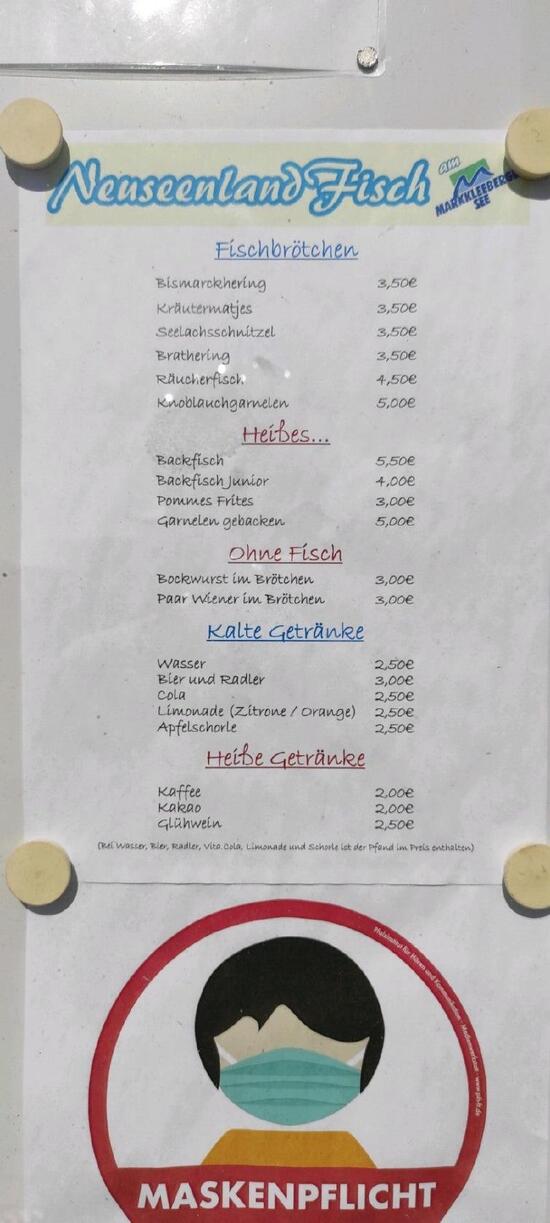 Neuseenland Fisch am
MARKKLEEBERGER
SEE
Fischbrötchen
Bismarckhering 3,50€
Kräutermatjes 3,50€
Seelachsschnitzel 3,50€
Brathering 3,50€
Räucherfisch 4,50€
Knoblauchgarnelen 5,00€
Heißes...
Backfisch 5,50€
Backfisch Junior 4,00€
Pommes Frites 3,00€
Garnelen gebacken 5,00€
Ohne Fisch
Bockwurst im Brötchen 3,00€
Paar Wiener im Brötchen 3,00€
Kalte Getränke
Wasser 2,50€
Bier und Radler 3,00€
Cola 2,50€
Limonade (Zitrone / Orange) 2,50€
Apfelschorle 2,50€
Heiße Getränke
Kaffee 2,00€
Kakao 2,00€
Glühwein 2,50€
(Bei Wasser, Bier, Radler, Vita Cola, Limonade und Schorle ist der Pfand im Preis enthalten)
für Hören und Kommunikation
MASKENPFLICHT